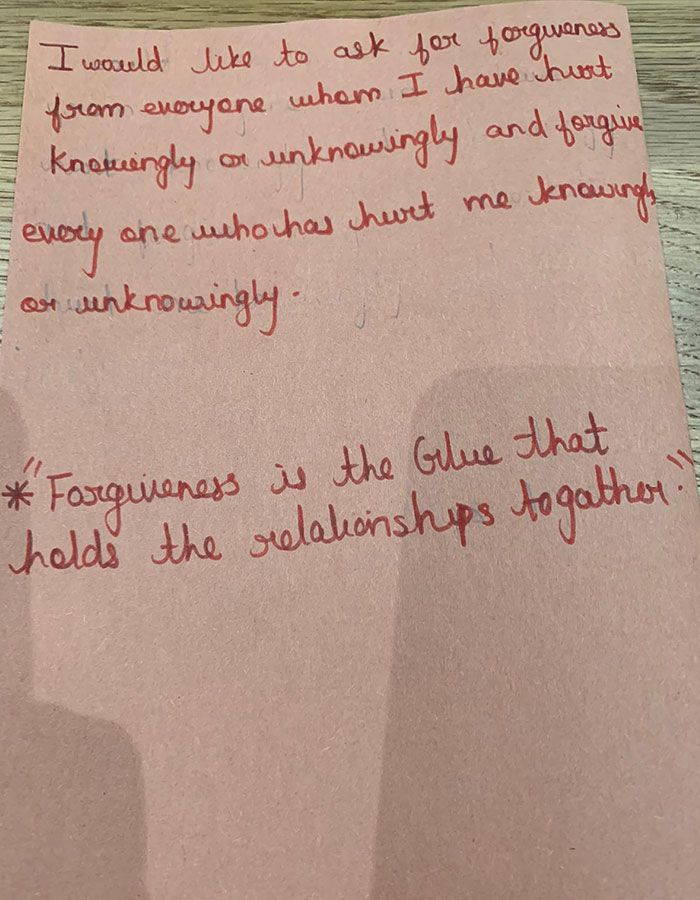 I would like to ask for forgiveness
from everyone whom I have hurt
knowingly or unknowingly and forgive
every one who has hurt me knowingly
or unknowingly.
* "Forgiveness is the Glue that
holds the relationships togather."